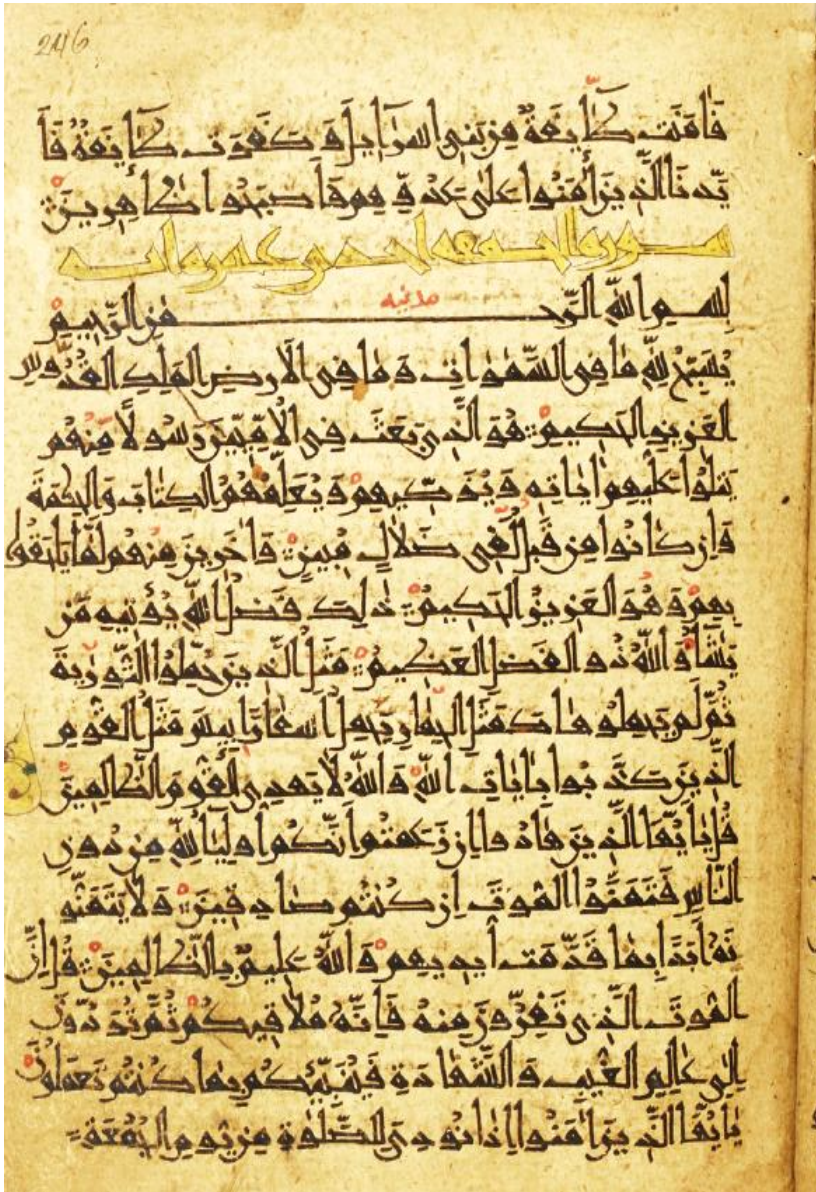 246
فَاٰمَنَت طَّايِفَةٌ مِن بَنِى اسرَآيِلَ وَ كَفَرَت طَايِفَةٌ فَأَ
يَّدنَا الَّذِينَ اٰمَنُوا عَلٰى عَدُوِّهِم فَأَصبَحُوا ظَاهِرِينَ
سورة الجمعة احدى عشر واية
مدنيه
بِسمِ اللّٰهِ الرَّحمٰنِ الرَّحِيمِ
يُسَبِّحُ لِلّٰهِ مَا فِى السَّمٰوَاتِ وَ مَا فِى الاَرضِ المَلِكِ القُدُّوسِ
العَزِيزِ الحَكِيمِ هُوَ الَّذِى بَعَثَ فِى الاُمِّيّٖنَ رَسُولًا مِّنهُم
يَتلُوا عَلَيهِم اٰيَاتِهٖ وَ يُزَكِّيهِم وَ يُعَلِّمُهُمُ الكِتَابَ وَالحِكمَةَ
وَ اِن كَانُوا مِن قَبلُ لَفِى ضَلَالٍ مُبِينٍ وَ اٰخَرِينَ مِنهُم لَمَّا يَلحَقُوا
بِهِم وَ هُوَ العَزِيزُ الحَكِيمُ ذٰلِكَ فَضلُ اللّٰهِ يُؤتِيهِ مَن
يَشَآءُ وَ اللّٰهُ ذُو الفَضلِ العَظِيمِ مَثَلُ الَّذِينَ حُمِّلُوا التَّورٰيةَ
ثُمَّ لَم يَحمِلُوهَا كَمَثَلِ الحِمَارِ يَحمِلُ اَسفَارًا بِيسَ مَثَلُ القَومِ
الَّذِينَ كَذَّبُوا بِاٰيَاتِ اللّٰهِ وَ اللّٰهُ لَا يَهدِى القَومَ الظَّالِمِينَ
قُل يَا اَيُّهَا الَّذِينَ هَادُوا اِن زَعَمتُم اَنَّكُم اَولِيَآءُ لِلّٰهِ مِن دُونِ
النَّاسِ فَتَمَنَّوُا المَوتَ اِن كُنتُم صَادِقِينَ وَ لَا يَتَمَنَّو
نَهٗ اَبَدًا بِمَا قَدَّمَت اَيدِيهِم وَ اللّٰهُ عَلِيمٌ بِالظَّالِمِينَ قُل اِنَّ
المَوتَ الَّذِى تَفِرُّونَ مِنهُ فَاِنَّهٗ مُلَاقِيكُم ثُمَّ تُرَدُّونَ
اِلٰى عَالِمِ الغَيبِ وَ الشَّهَادَةِ فَيُنَبِّئُكُم بِمَا كُنتُم تَعمَلُونَ
يَا اَيُّهَا الَّذِينَ اٰمَنُوا اِذَا نُودِىَ لِلصَّلٰوةِ مِن يَومِ الجُمُعَةِ